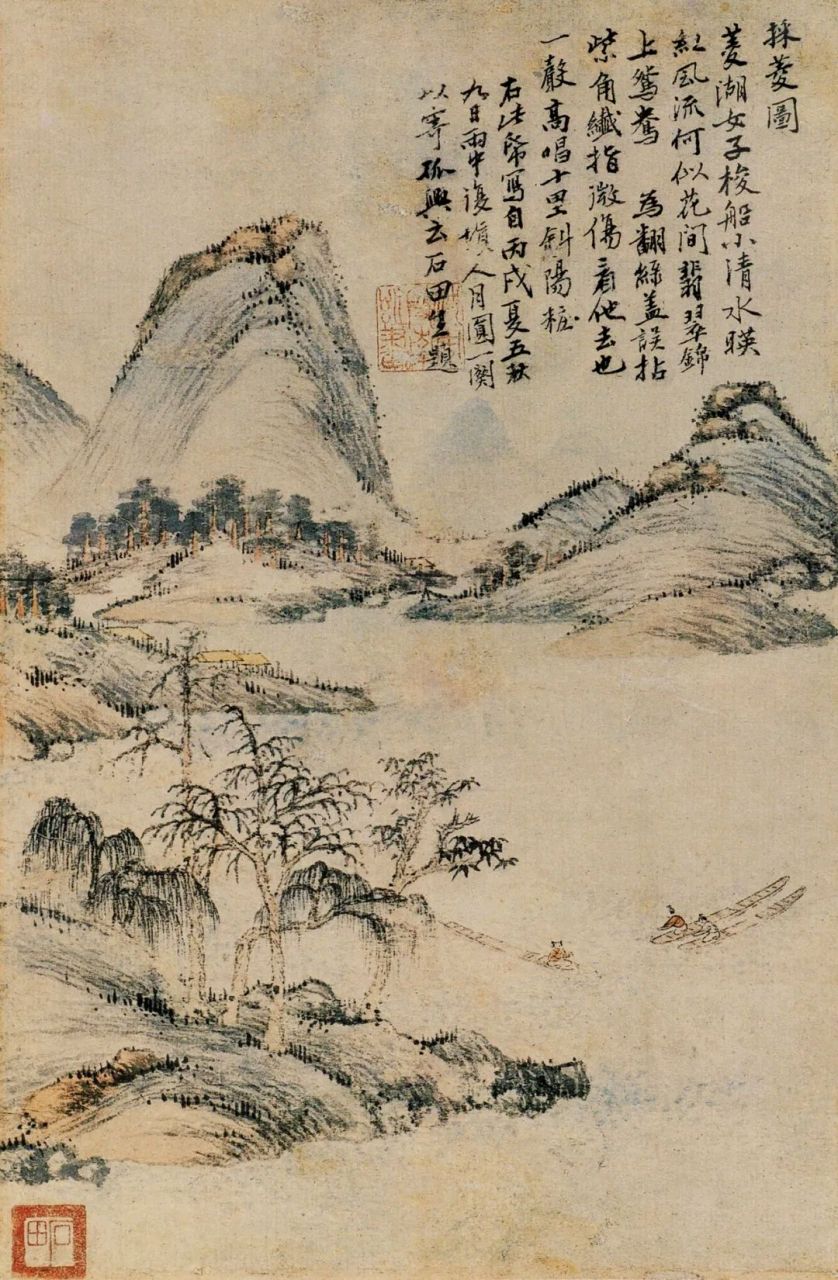 採菱圖
菱湖女子梭船小清水暎
紅風流何似花間翡翠錦
上鴛鴦 為翻絲蓋誤拈
紫角纖指微傷看他去也
一聲高唱十里斜陽粧
右此寫自丙戌夏五秋
九日雨中復填人月圓一闋
以寄孤興云石田生題
石田